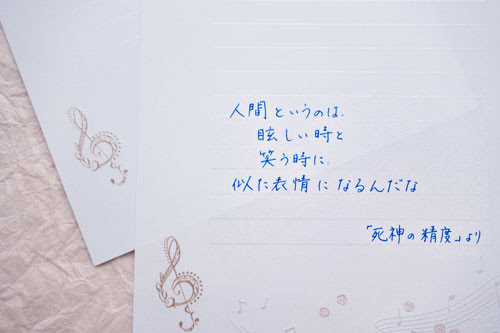 人間というのは、
眩しい時と
笑う時に、
似た表情になるんだな
「死神の精度」より